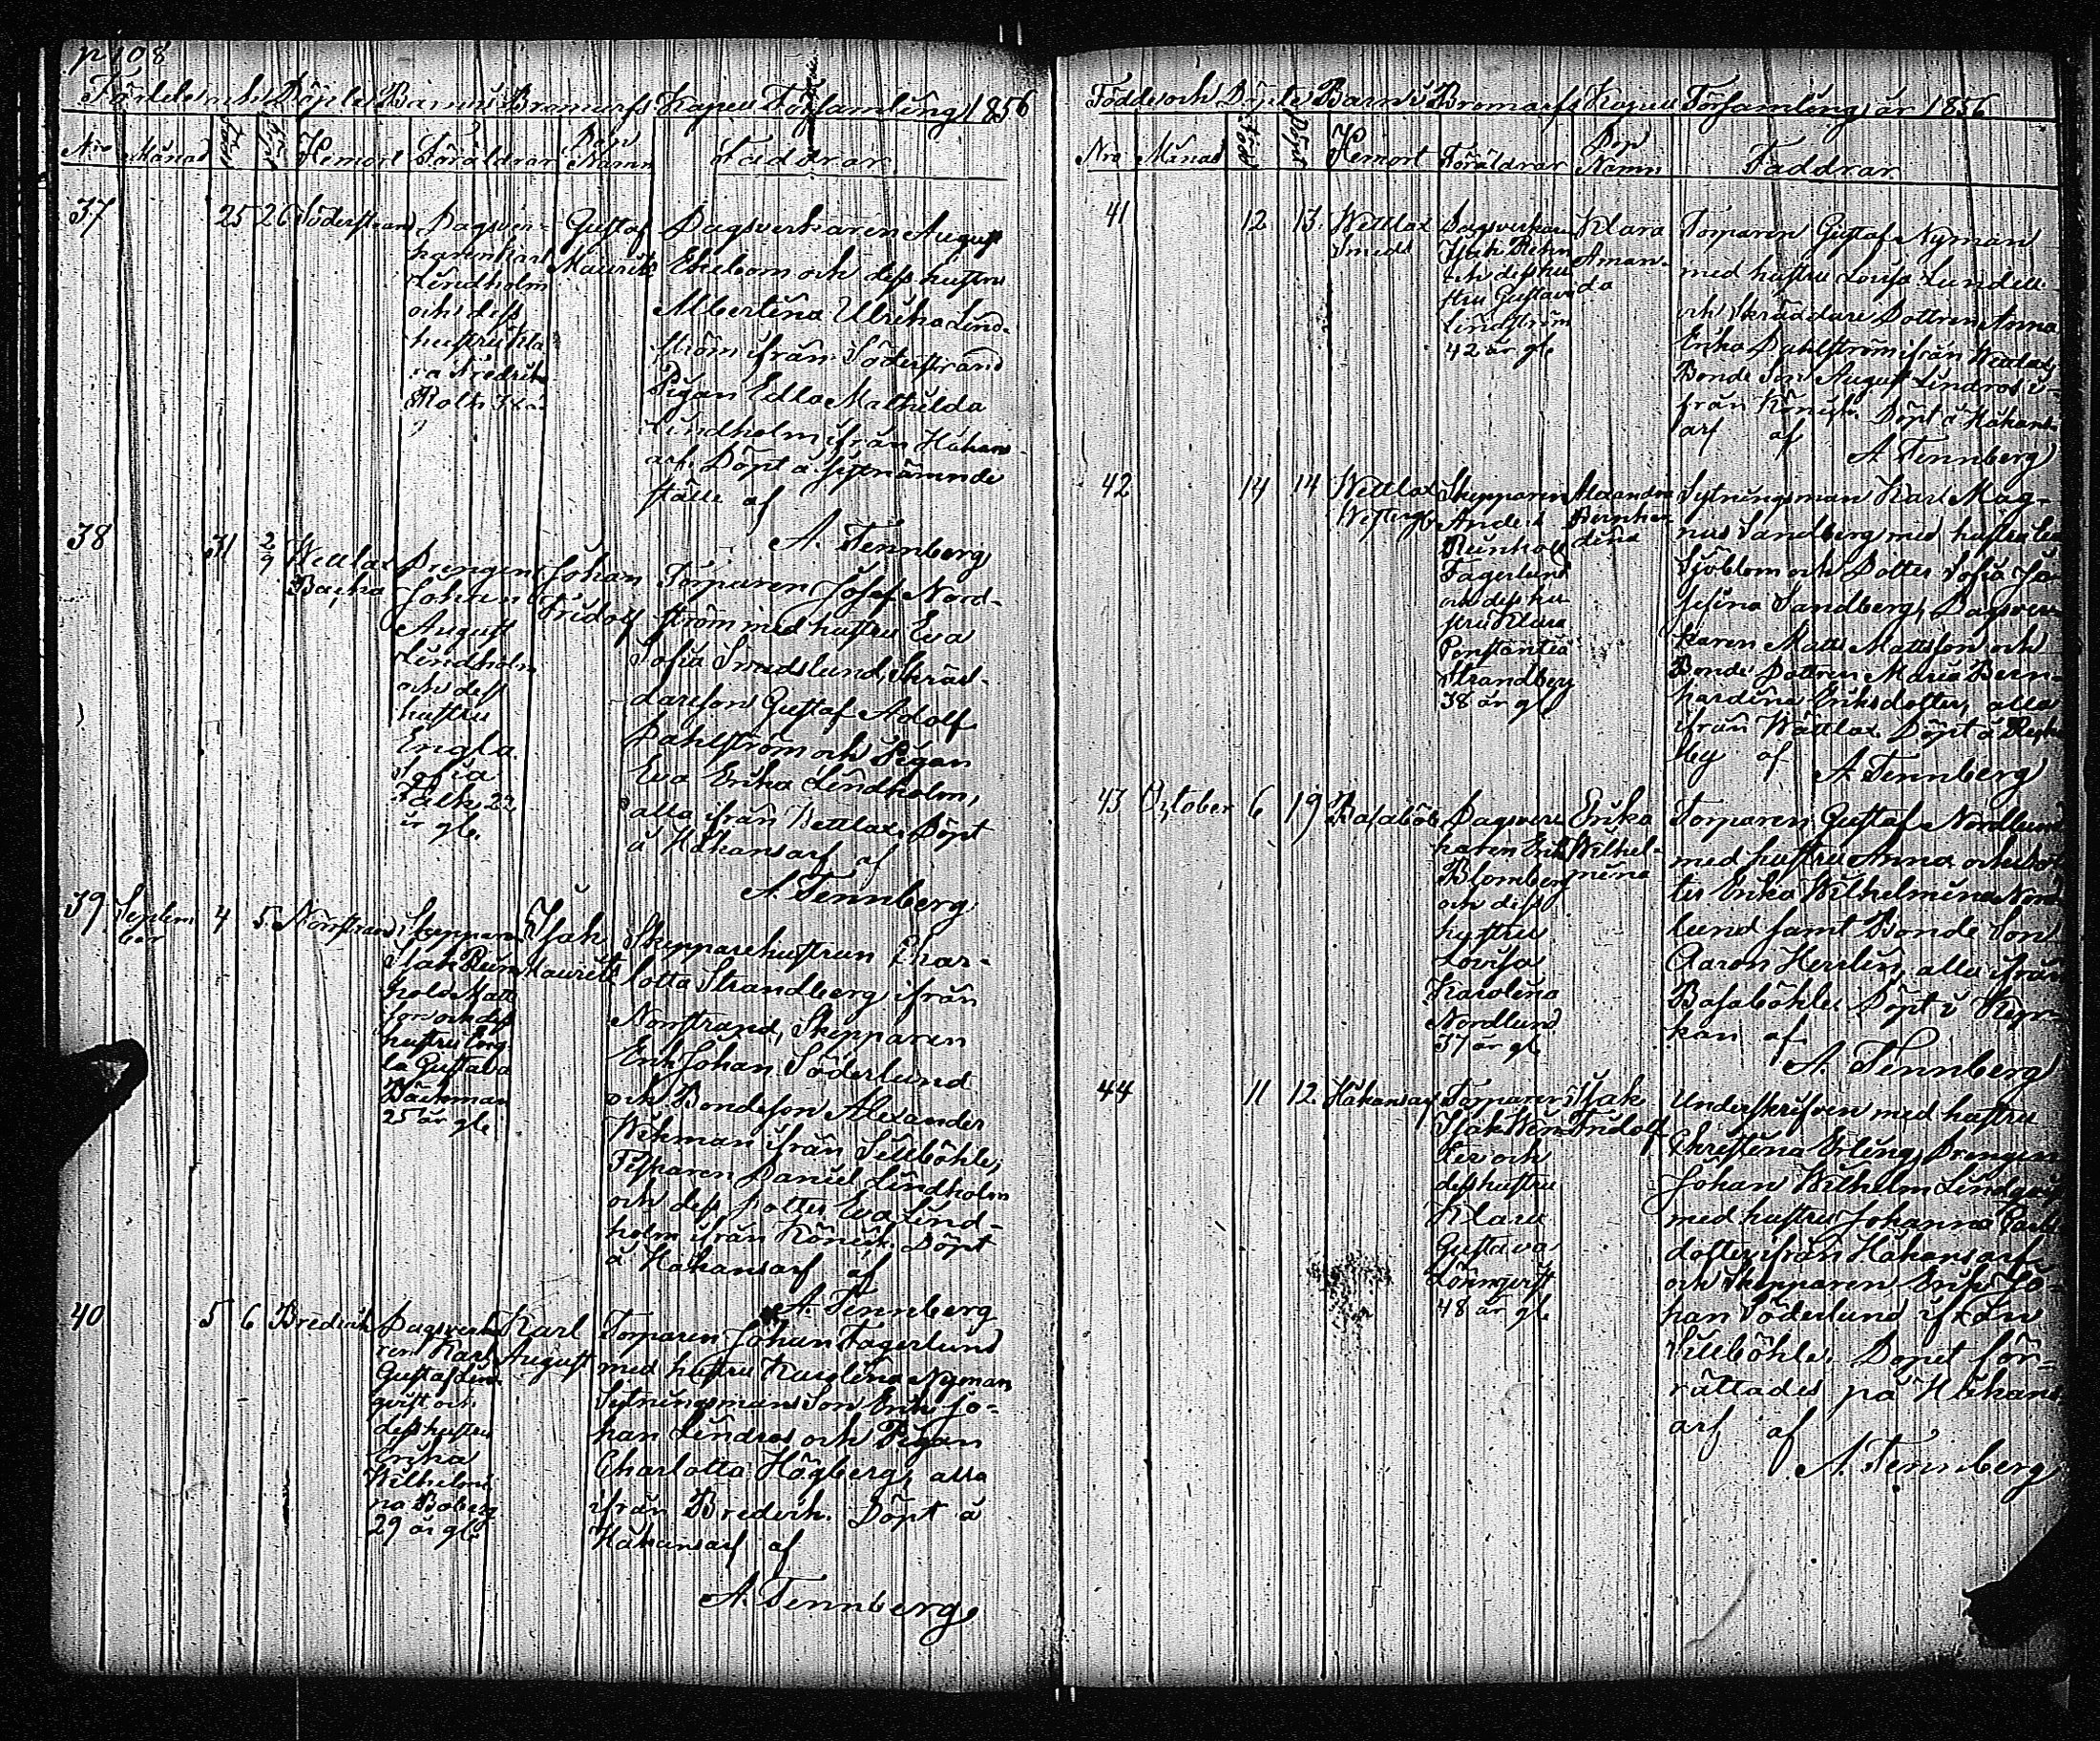 p 108
Födde och Döpte Barn i Bromarfs Kapell Församling 1856
Nro Månad Född Döpt Hemort Föräldrar Döp Namn Faddrar
37 25 26 Söderstrand
Dagsver-
karen Karl
Lindholm
och dess
hustru Kla
ra Fredrika
Gustaf
Maurits
Dagsverkaren August
Ekebom och dess hustru
Albertina Ulrika Lind-
ström ifrån Söderstrand
Pigan Edla Mathilda
Lindholm ifrån Håkans-
arf. Döpt å sistnämnde
ställe af
A. Tennberg
38 31 2/9 Wettlax
Backa
Drengen
Johan
August
Lindholm
och dess
hustru
Engla
Sofia
Falk 22
år gl.
Johan
Fridolf
Torparen Josef Nord-
ström med hustru Eva
Sofia Smedslund, Skräd-
dareson Gustaf Adolf
Dahlström och Pigan
Eva Erika Lindholm,
alla ifrån Wettlax. Döpt
å Håkansarf af
A. Tennberg
39 Septem
ber 4 5 Norrstrand
Skepparen
Isak Rein
hold Matt
son och dess
hustru Eng
la Gustava
Bäckman
25 år gl.
Isak
Maurits
Skepparehustrun Char-
lotta Strandberg ifrån
Norrstrand, Skepparen
Erik Johan Söderlund
och Bondeson Alexander
Wikman ifrån Sillböhle,
Fiskaren Daniel Lindholm
och dess Dotter Eva Lind-
holm ifrån Könick. Döpt
å Håkansarf af
A. Tennberg
40 5 6 Brederik
Dagsverka
ren Karl
Gustaf Lin
qvist och
dess hustru
Erika
Wilhelmi
na Boberg
29 år gl.
Karl
August
Torparen Johan Fagerlund
med hustru Karolina Nyman
Sytningsmans Son Erik Jo-
han Lindros och Pigan
Charlotta Högberg, alla
ifrån Brederik. Döpt å
Håkansarf af
A. Tennberg
Födde och Döpte Barn i Bromarfs Kapell Församling år 1856
Nro Månad Född Döpt Hemort Föräldrar Döp Namn Faddrar
41 12 13 Wettlax
Smeds
Dagsverkaren
Isak
och dess hu
stru Gustava
Lindström
42 år gl.
Klara
Aman-
da
Torparen Gustaf Nyman
med hustru Lovisa Lundell
och Skräddare Dottren Anna
Erika Dahlström ifrån Wettlax,
Bonde Son August Lindros i-
från Könick. Döpt å Håkans-
arf af
A Tennberg
42 14 14 Wettlax
Westergd
Skepparen
Anders
Reinhold
Fagerlund
och dess hu
stru Klara
Constantia
Strandberg
38 år gl
Alexandra
Bernhar
dina
Sytningsman Karl Mag-
nus Sandberg med hustru
Sjöblom och Dotter Sofia Jo
sefina Sandberg, Dagsver-
karen Matts Mattsson och
Bonde Dottren Maria Bern-
hardina Eriksdotter, alla
ifrån Wättlax. Döpt å
by af
A Tennberg
43 October 6 19 Basaböle
Dagsver
karen Erik
Blomberg
och dess
hustru
Lovisa
Karolina
Nordlund
37 år gl
Erika
Wilhel-
mina
Torparen Gustaf Nordlund
med hustru Anna och dot-
ter Erika Wilhelmina Nord
lund samt Bonde Son
Aaron Herrlin, alla ifrån
Basaböhle. Döpt i Kyr-
kan af
A. Tennberg
44 11 12 Håkansarf
Torparen
Isak
och
dess hustru
Klara
Gustava
Lönnqvist
48 år gl.
Isak
Fridolf
Underskrifven med hustru
Christina Erling, Drengen
Johan Wilhelm Lindqvist
med hustru Johanna
dotter ifrån Håkansarf
och Skepparen Erik Jo-
han Söderlund ifrån
Sillböhle. Dopet för-
rättades på Håkans
arf af
A. Tennberg